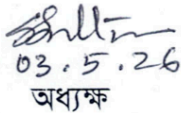 03.5.26
অধ্যক্ষ